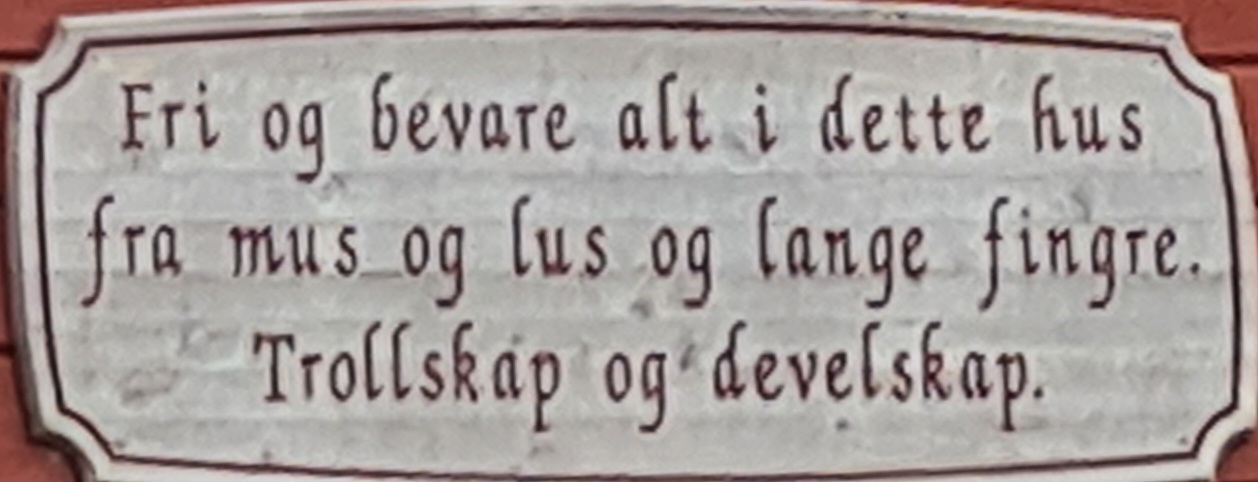 Fri og bevare alt i dette hus
fra mus og lus og lange fingre.
Trollskap og develskap.